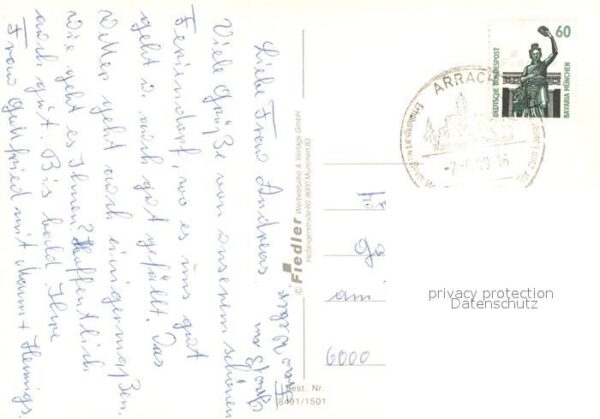 Liebe Frau Andreas,
Viele Grüße von unserem schönen
Feriendorf, wo es uns gut
geht u. auch gut gefällt. Das
Wetter geht auch einigermaßen.
wie geht es Ihnen? Hoffentlich
auch gut. Bis bald Ihre
Frau Gottfried mit Mann + Hennings.
© Fiedler Werbestudio & Verlags GmbH
8000 München 83
Best. Nr.
8491/1501
60
DEUTSCHE BUNDESPOST
BAVARIA MÜNCHEN
ARRACH
Frau Weber
am
6000
privacy protection
Datenschutz